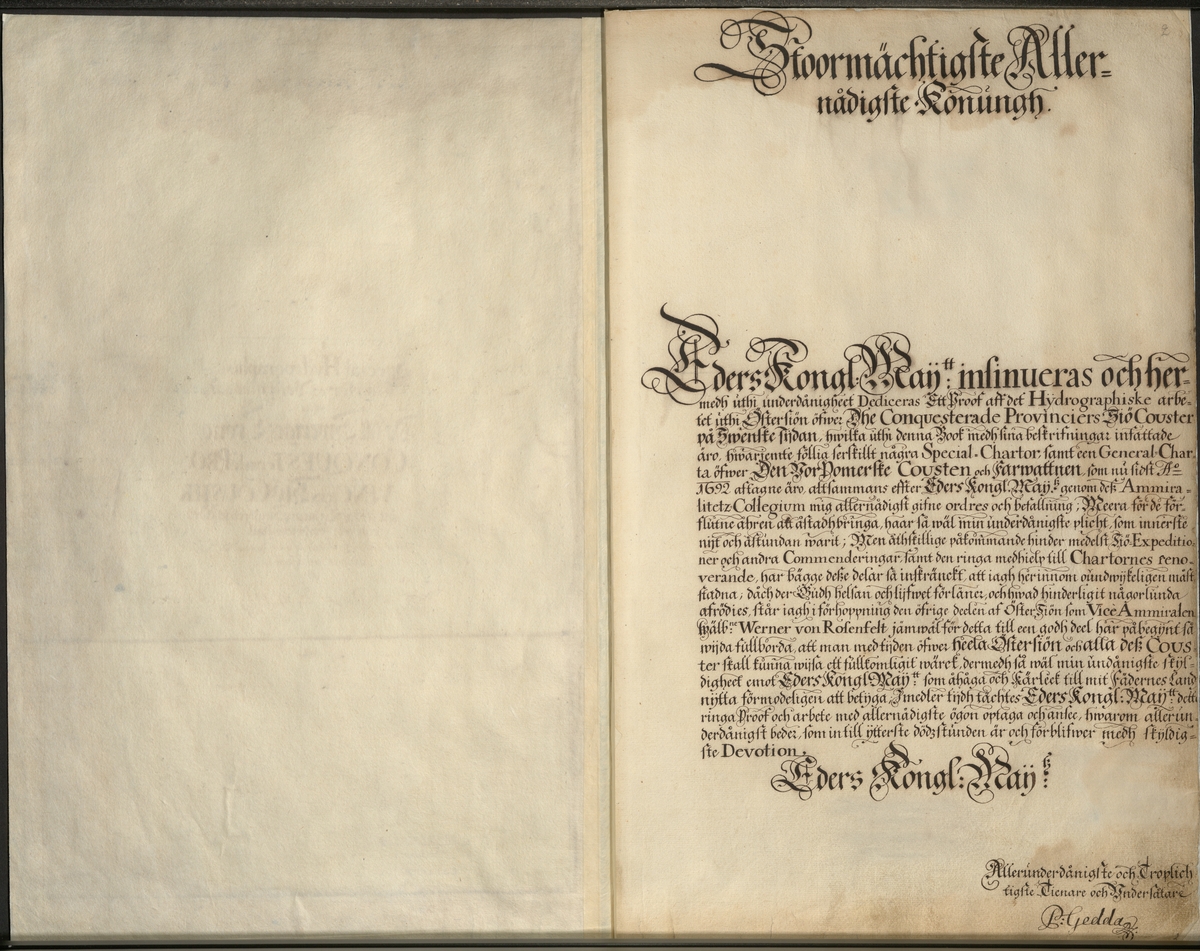 2
Stoormächtigste Aller=
nådigste Konungh.
Eders Kongl: May:tt insinueras och her=
medh uthi underdånigheet Dediceras Ett Proof aff det Hydrographiske arbe=
tet uthi Östersiön öfwer Dhe Conquesterade Provinciers Siö Couster
på Swenske Sijdan, hwilka uthi denna Book medh sina beskrifningar infattade
äro, hwariente föllia serskillt några Special-Chartor, samt een General-Char
ta öfwer Den Vor Pomerske Cousten och Farwattnen, som nu sidst Ao
1692 aftagne äro, altsammans effter Eders Kongl: May:tz genom deß Ammira=
litetz Collegium mig allernådigst gifne ordres och befallning; Meera för de för-
flutne åhren att åstadhbringa, haar så wäl min underdånigste plicht, som innerste
nijt och åstundan warit; Men åthskillige påkommande hinder medelst Siö-Expeditio=
ner och andra Commenderingar, samt den ringa medhielp till Chartornes reno=
verande, har bägge deße delar så inskränckt, att iagh herinnom oundwijkeligen måst
stadna, däch der Gudh helsan och lijfwet förläner, och hwad hinderligit någorlunda
afrödies, står iagh i förhoppning den öfrige deelen af Öster Siön som Vice Ammiralen
Wälb:ne Werner von Rosenfelt jämwäl för detta till een godh deel har påbegynt så
wijda fullborda, att man med tijden öfwer heela Östersiön och alla deß Cous=
ter skall kunna wijsa ett fullkomligit wärck, dermedh så wäl min undånigste skyl=
digheet emot Eders Kongl May:tt som åhåga och Kärleek till mit Fädernes Land
nytta förmodeligen att betyga, Imedler tijdh täcktes Eders Kongl: May:tt dette
ringa Proof och arbete med allernådigste ögon optaga och ansee, hwarom allerun
derdånigst beder, som in till ytterste dödzstunden är och förblifwer medh skyldig=
ste Devotion.
Eders Kongl: May:tz
Allerunderdånigste och Troplich
tigste Tienare och Undersåtare
P: Gedda